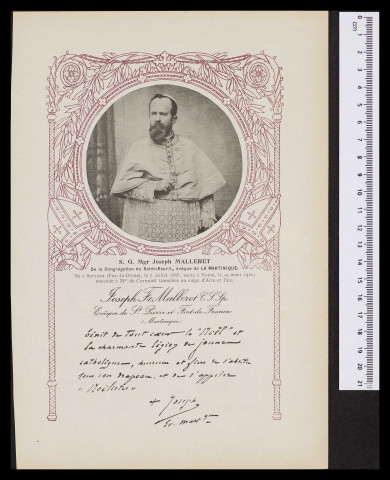 S. G. Mgr Joseph MALLERET
De la Congrégation du Saint-Esprit, évêque de LA MARTINIQUE.
Né à (Puy-de-Dôme), le 7 juillet sacré à Rome, le 19 mars
succède à Mgr de Cormont transféré au siège d'Aire et Dax.
Joseph Fs Malleret C.S.Sp.
Evêque de St Pierre et Fort-de-France
Martinique
bénit de tout cœur le "Noël" et
la charmante légion de jeunes
catholiques, heureux et fiers de
sous son drapeau, et de s'appeler
"Noëlistes"
+ Joseph
Ev. Martque
0
cm
1
2
3
4
5
6
7
8
9
10
11
12
13
14
15
16
17
18
19
20
21